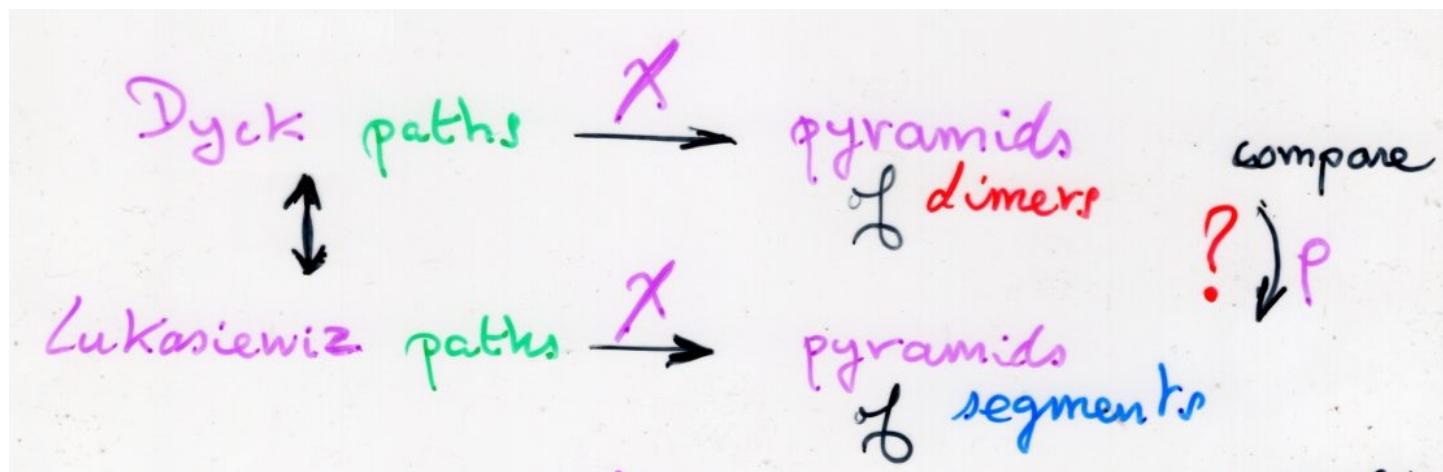 Dyck paths χ pyramids
of dimers
compare
? ρ
Lukasiewiz paths χ pyramids
of segments